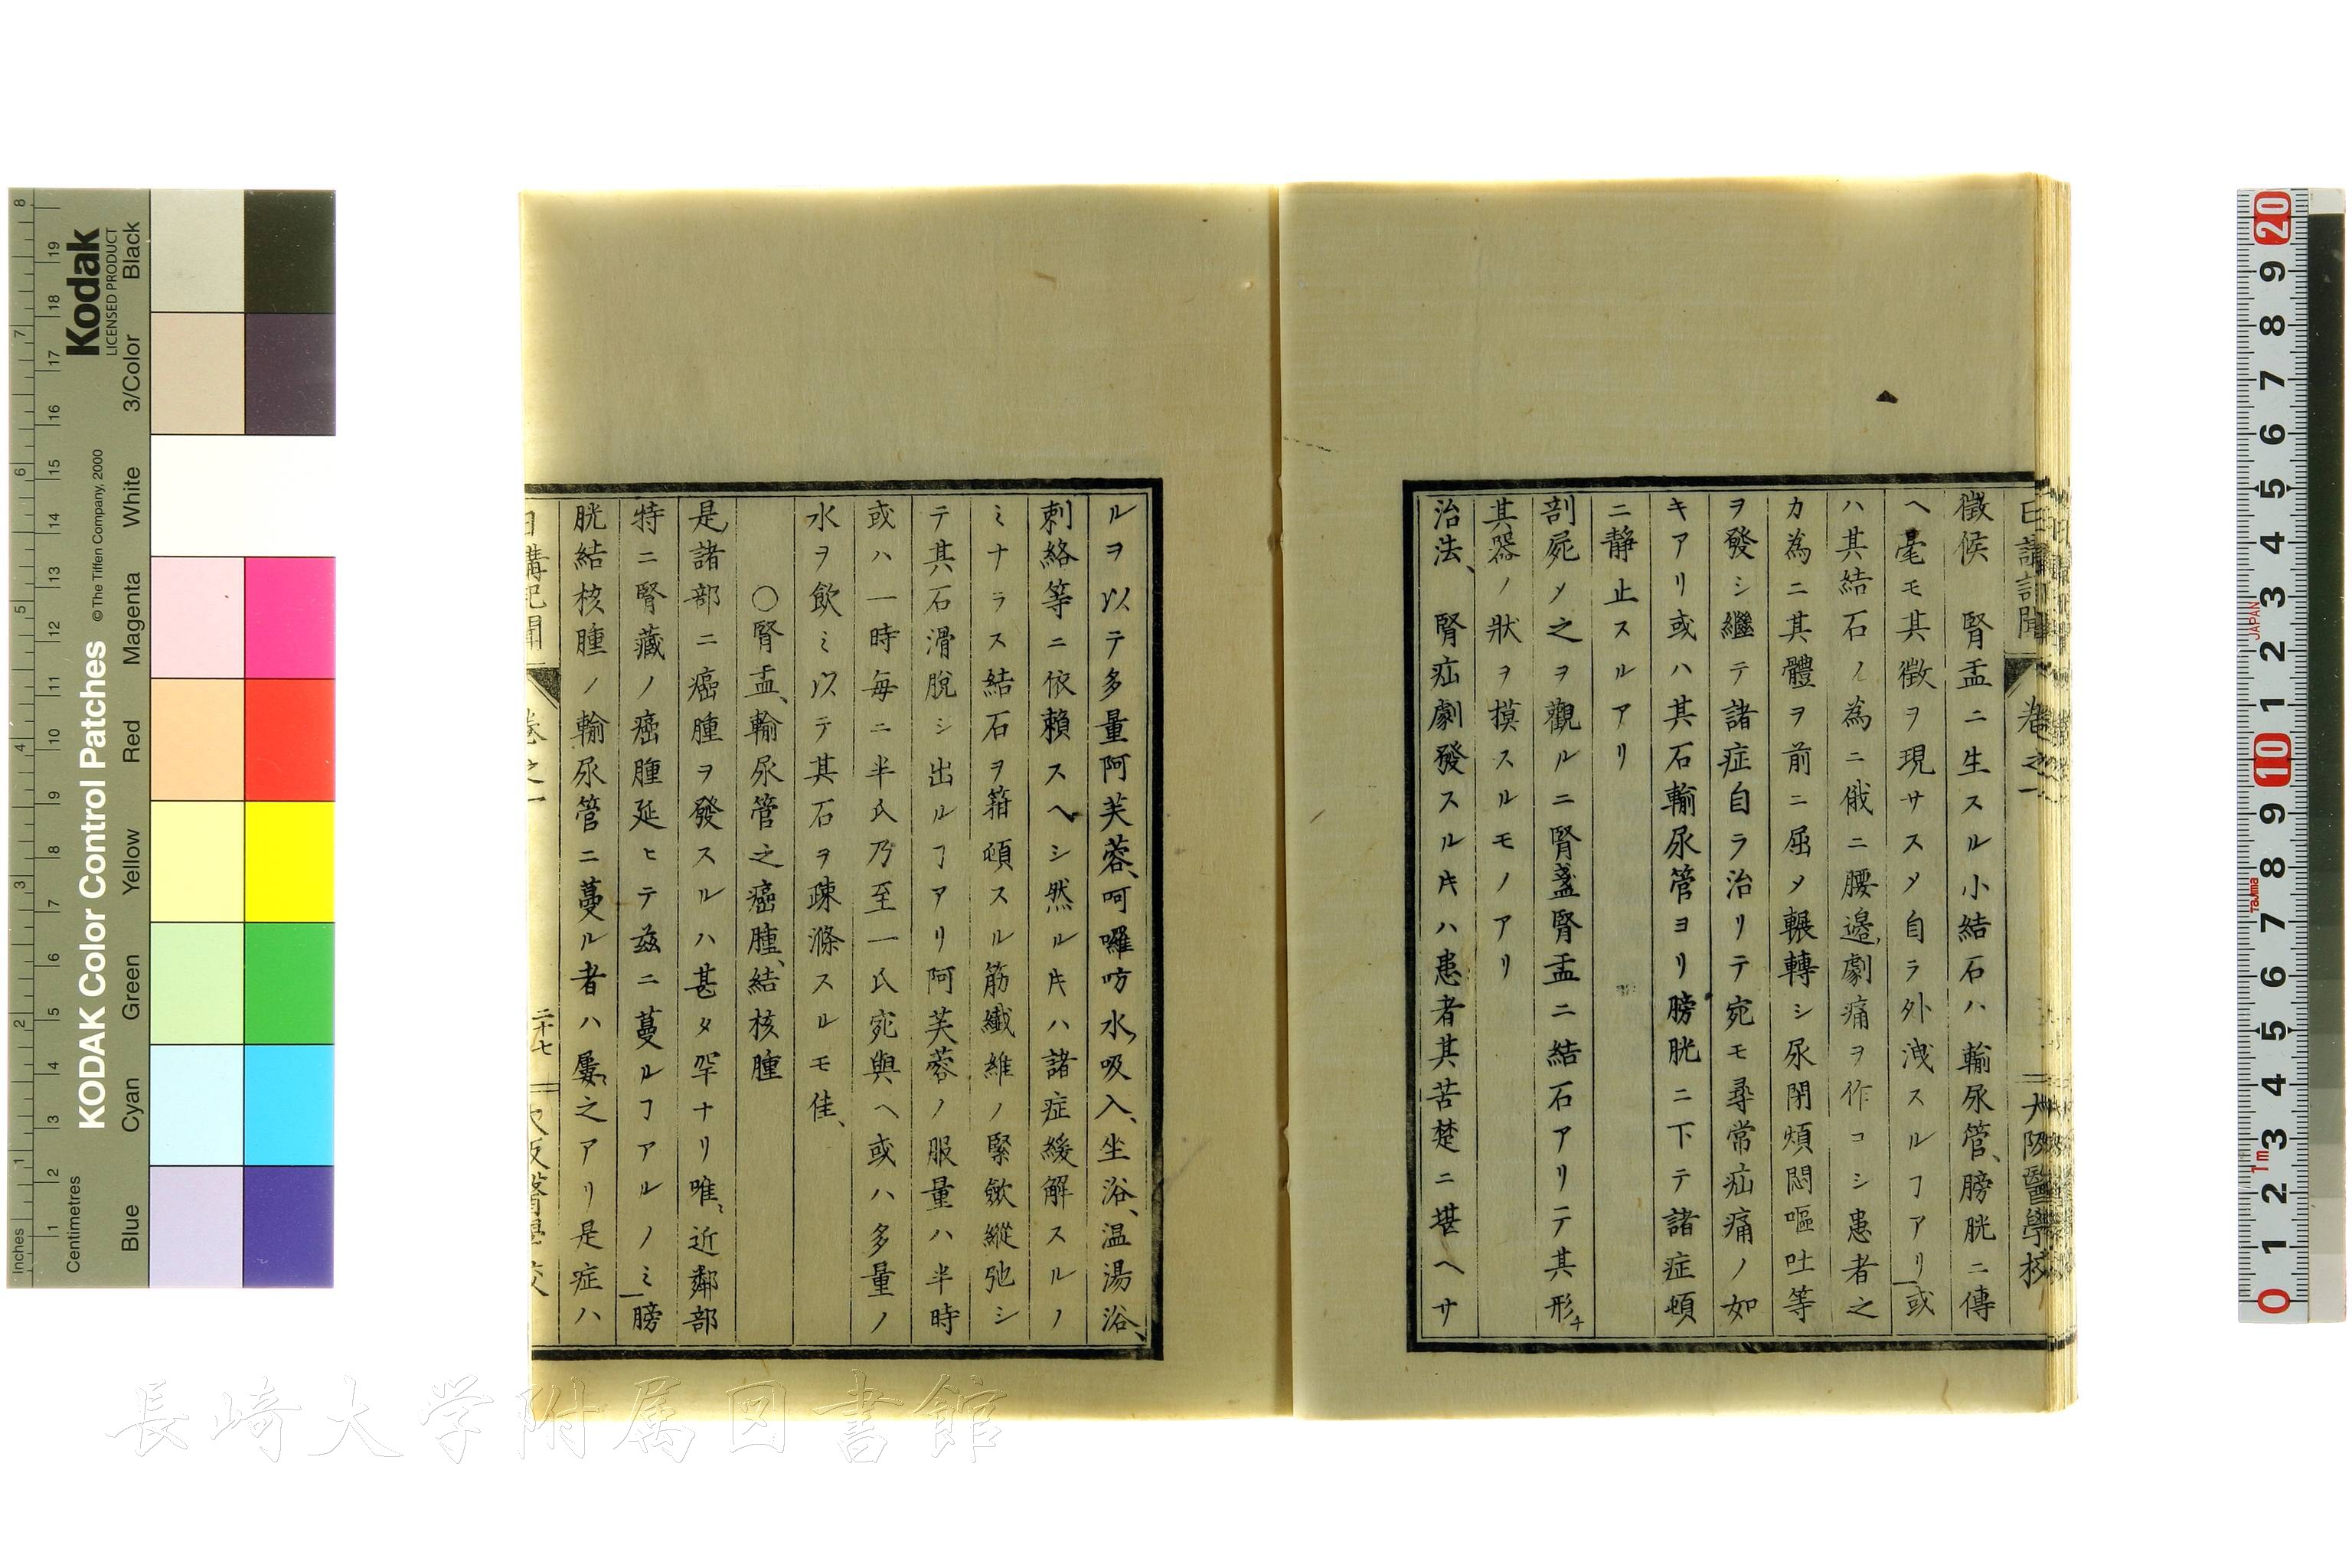 日講記聞 卷之一 大阪醫學校
徵候　腎盂ニ生スル小結石ハ輸尿管、膀胱ニ傳
ヘ毫モ其徵ヲ現サスメ自ラ外洩スルヿアリ或
ハ其結石ノ為ニ俄ニ腰邊、劇痛ヲ作コシ患者之
カ為ニ其體ヲ前ニ屈メ輾轉シ尿閉煩悶嘔吐等
ヲ發シ繼テ諸症自ラ治リテ宛モ尋常疝痛ノ如
キアリ或ハ其石輸尿管ヨリ膀胱ニ下テ諸症頓
ニ靜止スルアリ
剖屍メ之ヲ觀ルニ腎盞腎盂ニ結石アリテ其形チ
其器ノ狀ヲ摸スルモノアリ
治法、　腎疝劇發スル𪜈ハ患者其苦楚ニ堪ヘサ
ルヲ以テ多量阿芙蓉、呵囉仿水、吸入、坐浴、温湯浴、
刺絡等ニ依賴スヘシ然ル𪜈ハ諸症緩解スルノ
ミナラス結石ヲ箝頓スル筋纖維ノ緊斂縱弛シ
テ其石滑脫シ出ルヿアリ阿芙蓉ノ服量ハ半時
或ハ一時每ニ半氏乃至一氏宛與ヘ或ハ多量ノ
水ヲ飲ミ以テ其石ヲ疎滌スルモ佳、
○腎盂、輸尿管之癌腫、結核腫
是諸部ニ癌腫ヲ發スルハ甚タ罕ナリ唯近鄰部
特ニ腎藏ノ癌腫延ヒテ茲ニ蔓ルヿアルノミ膀
胱結核腫ノ輸尿管ニ蔓ル者ハ屢之アリ是症ハ
日講記聞 卷之一 二十七 大阪醫學校
Inches 1 2 3 4 5 6 7 8
Centimetres 1 2 3 4 5 6 7 8 9 10 11 12 13 14 15 16 17 18 19
KODAK Color Control Patches © The Tiffen Company, 2000
Kodak
LICENSED PRODUCT
Blue Cyan Green Yellow Red Magenta White 3/Color Black
0 1 2 3 4 5 6 7 8 9 10 1 2 3 4 5 6 7 8 9 20
1m Tajima JAPAN
長崎大学附属図書館